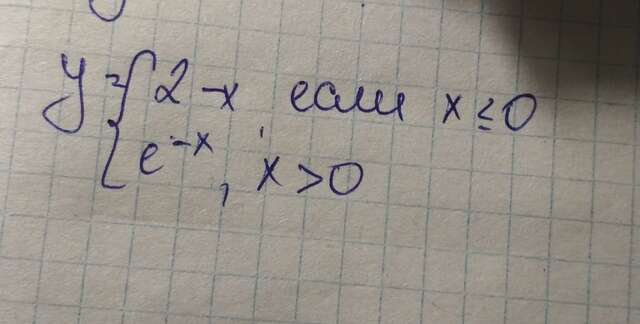 y = { 2 -x если x ≤ 0
e^{-x}, x > 0